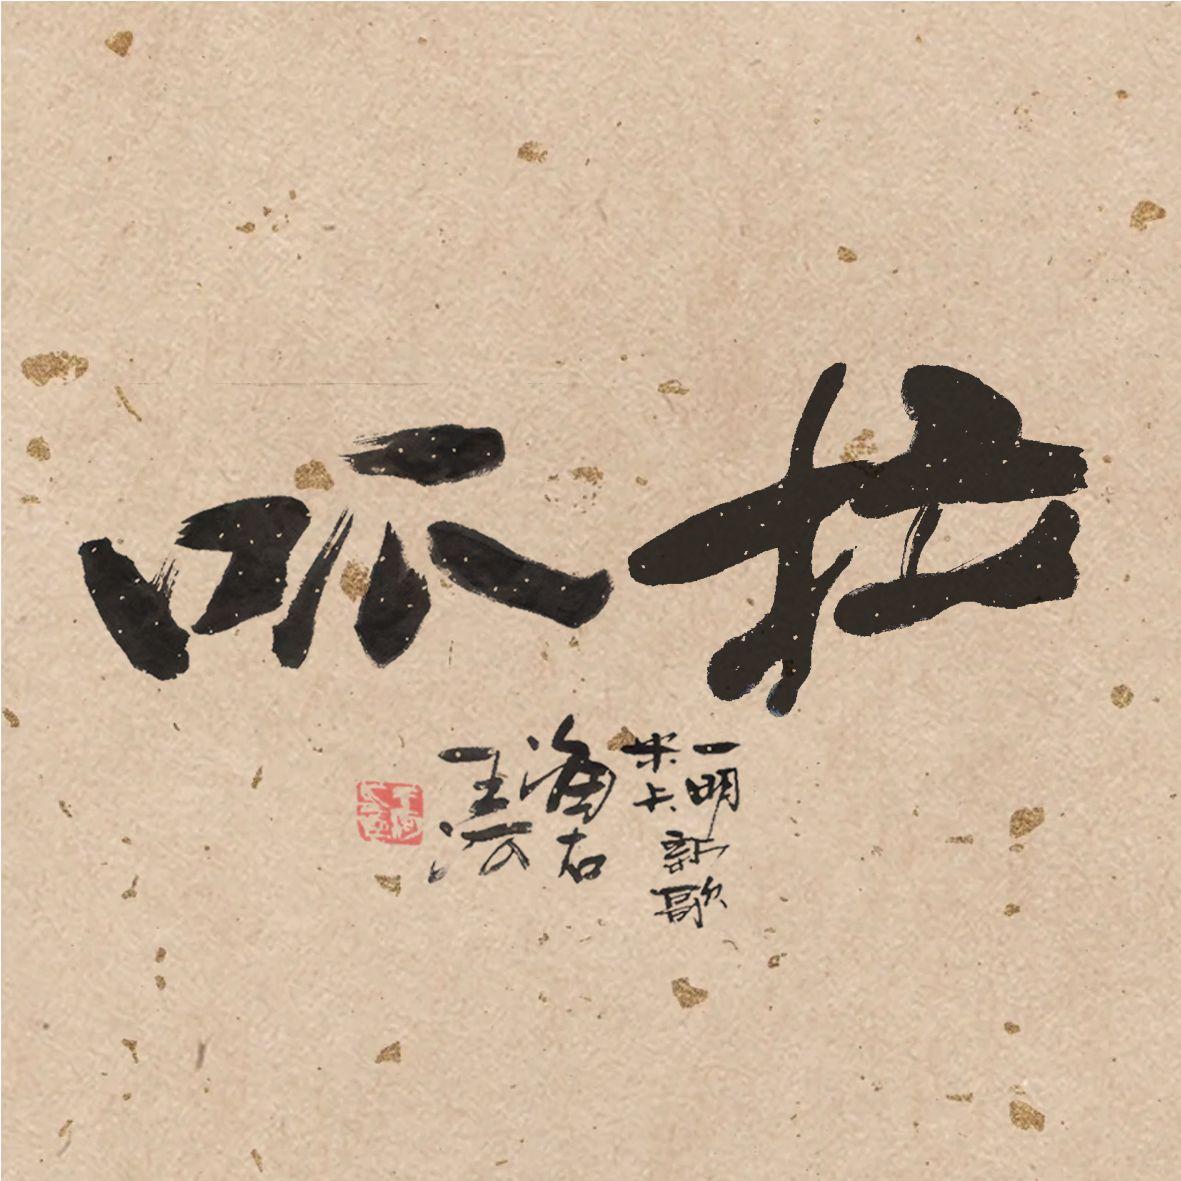 拉呱
一明
米卡
新歌
海右
王涛